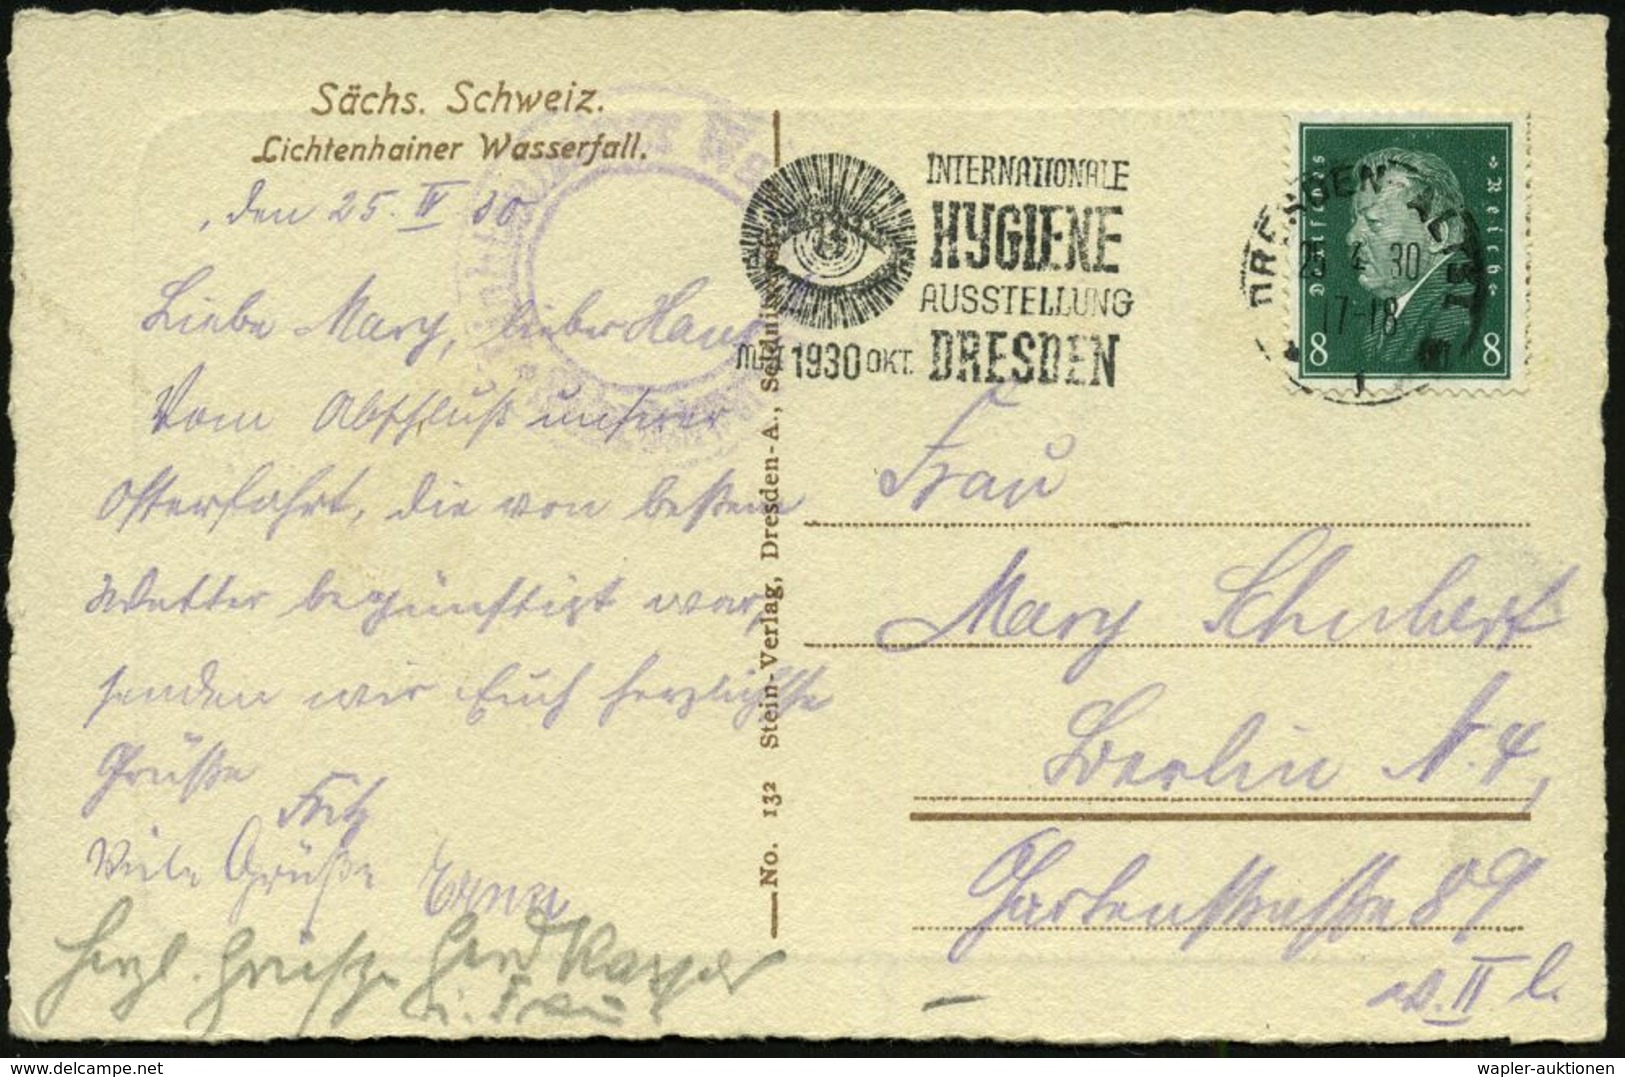 Sächs. Schweiz.
Lichtenhainer Wasserfall.
, den 25. IV 30
Liebe Mary, lieber Hans
Vom Abschluß unserer
Osterfahrt, die von bestem
Wetter begünstigt war,
senden wir Euch herzlichste
Grüße
Fritz
Viele Grüße Erna
Herzl. Grüße Gerd
u. Frau
No. 132 Stein-Verlag, Dresden-A.,
INTERNATIONALE
HYGIENE
AUSSTELLUNG
DRESDEN
MAI 1930 OKT.
DRESDEN-ALTST.
25 4 30
17-18
1
Deutsches Reich
8 8
Frau
Mary Schubert
Berlin N. 4,
Gartenstraße 89
II l.
wapler-auktionen